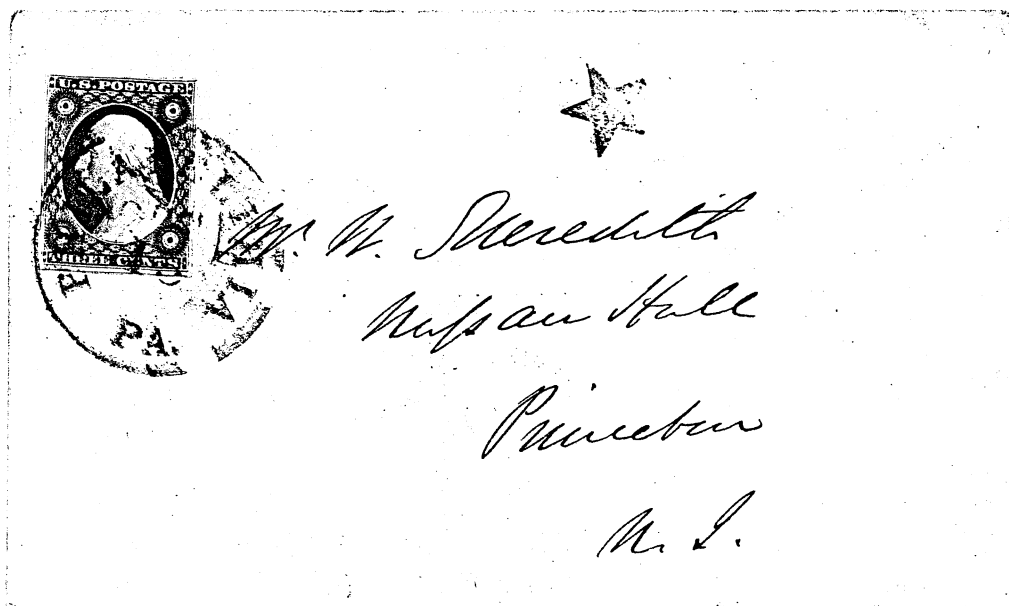 U.S. POSTAGE
THREE CENTS
PA.
Mr. W. Meredith
Nassau Hall
Princeton
N. J.